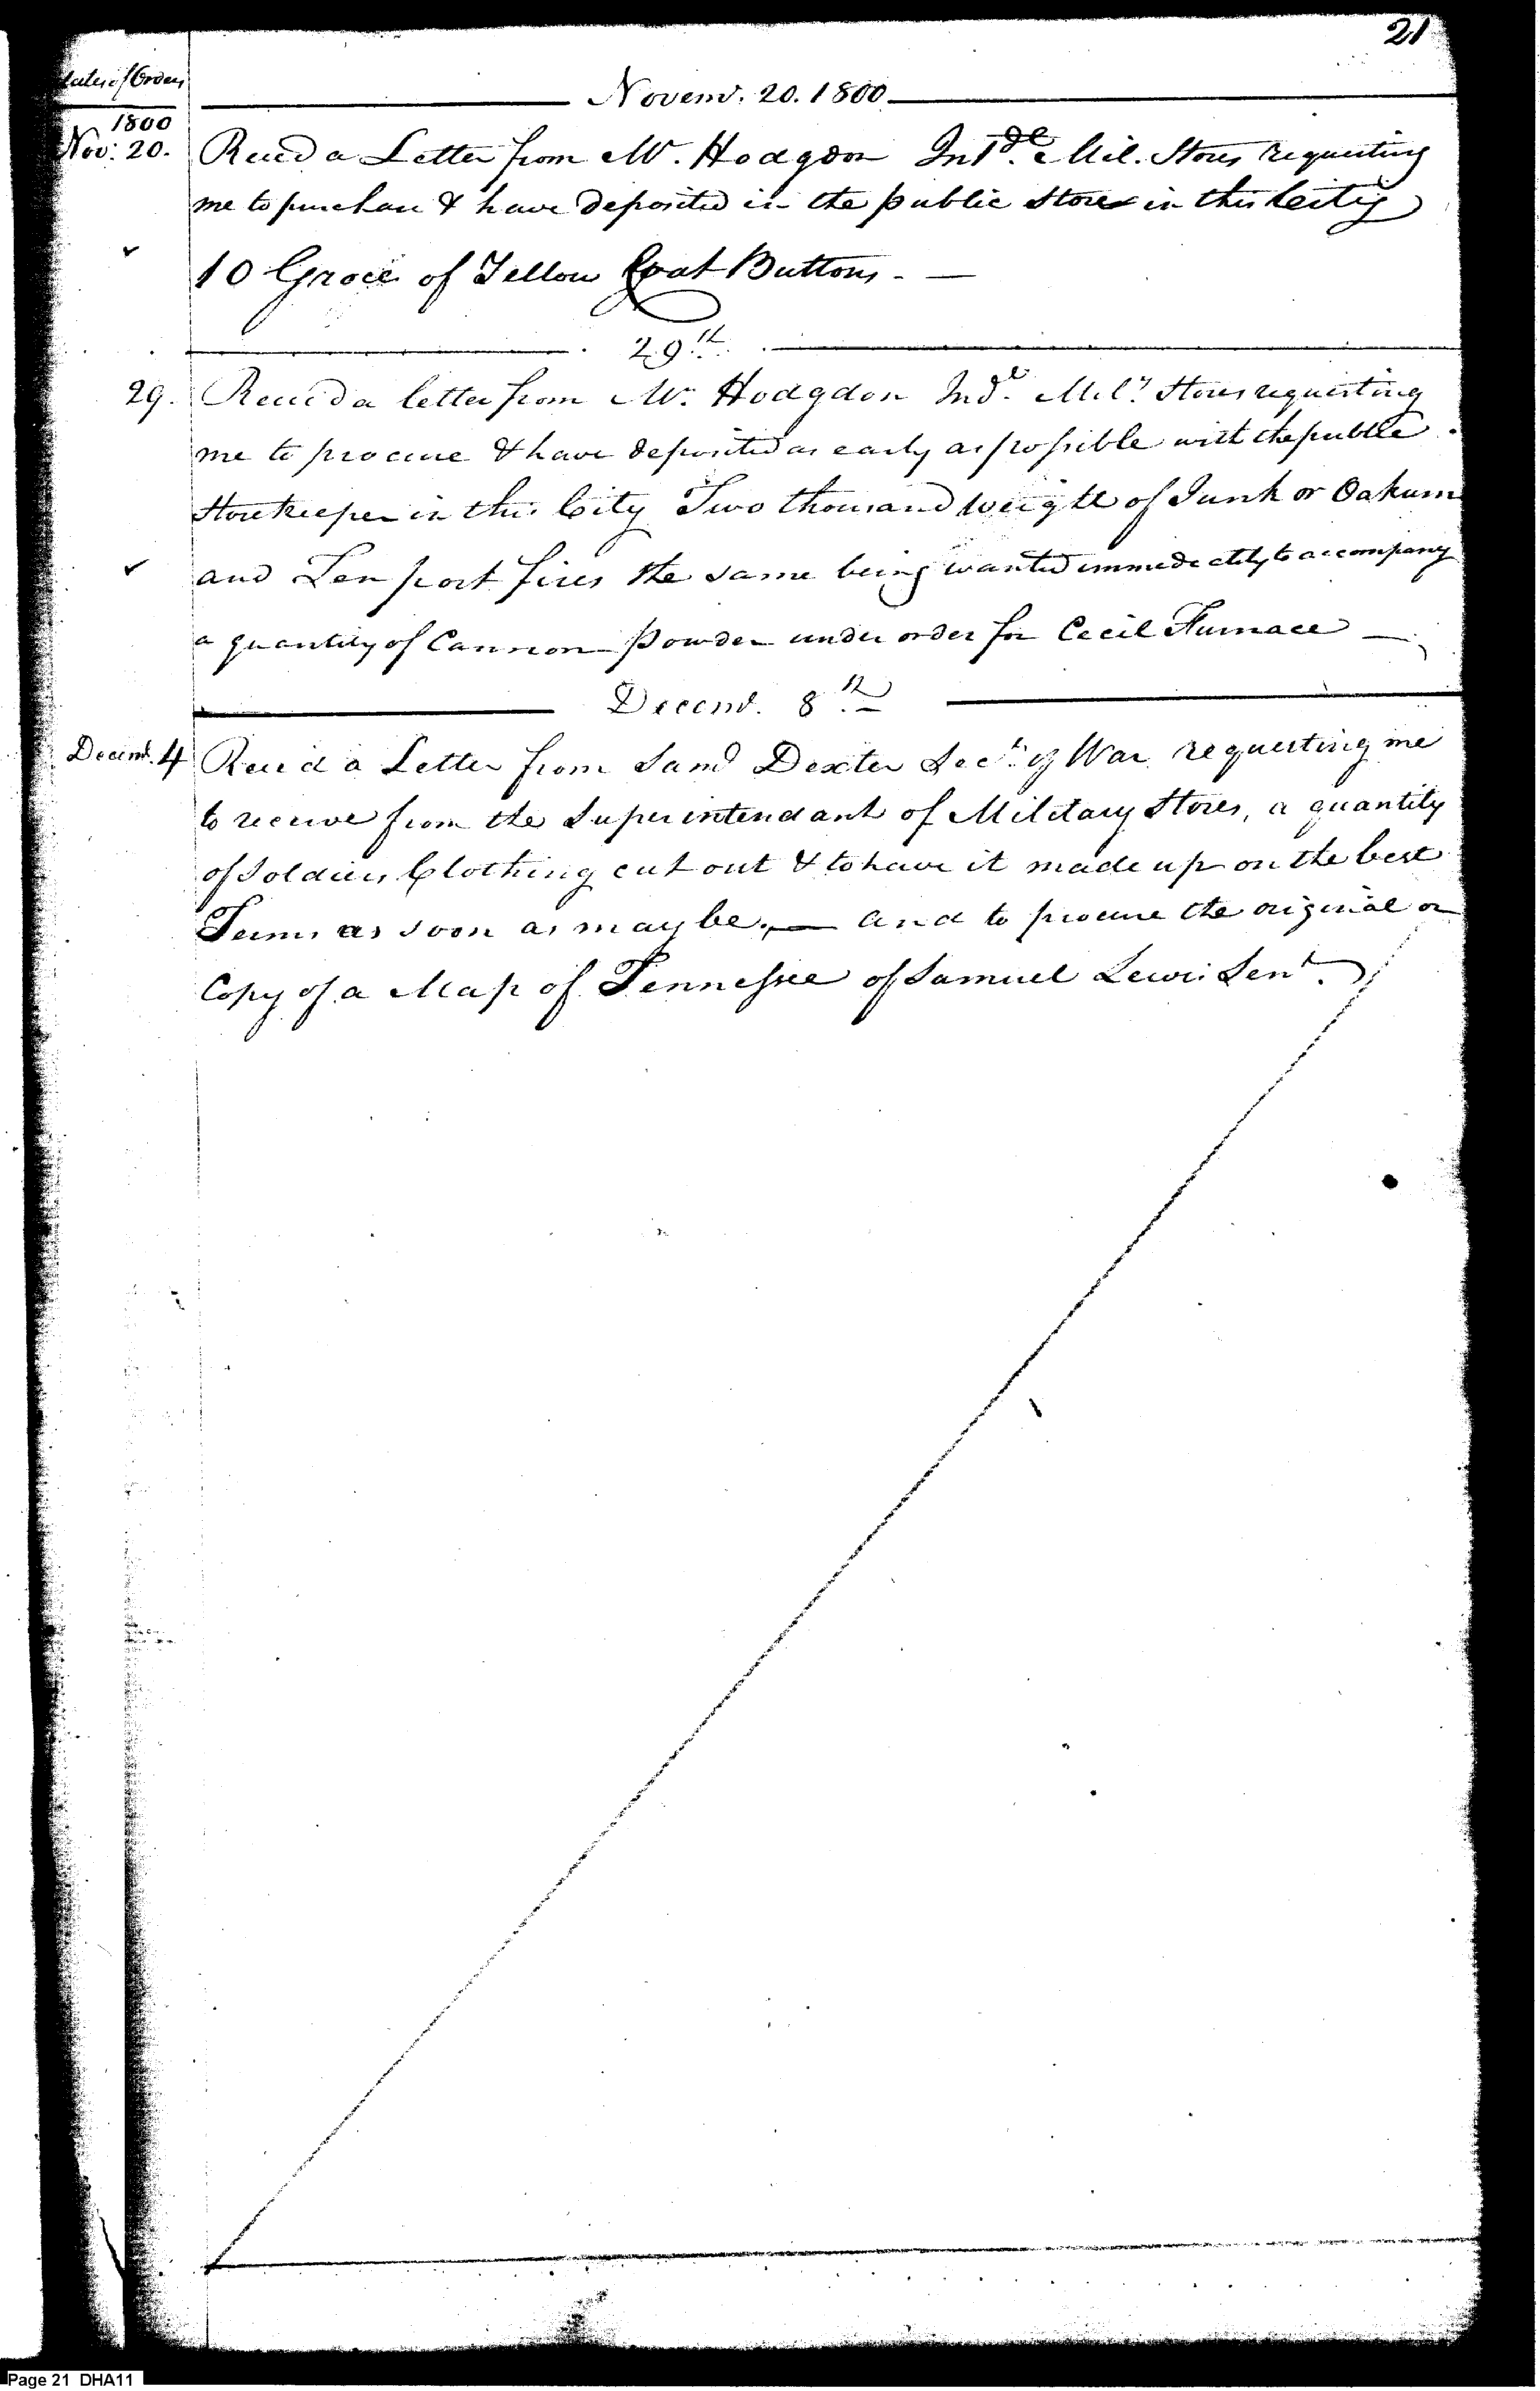 21
Dates of Orders
Novemr. 20. 1800
1800
Nov: 20. Receed a Letter from Mr. Hodgdon Intde. Mil. Stores requesting
me to purchase & have deposited in the public Store in this City
10 Groce of Yellow Coat Buttons. —
29th.
29. Receed a letter from Mr. Hodgdon Indt. Mily. Stores requesting
me to procure & have deposited as early as possible with the public
Storekeeper in this City Two thousand weight of Junk or Oakum
and Ten port fires the same being wanted immediately to accompany
a quantity of Cannon Powder under order for Cecil Furnace —
Decemr. 8th
Decemr. 4 Receed a Letter from Saml Dexter Secy. of War requesting me
to receive from the Superintendant of Military Stores, a quantity
of Soldiers Clothing cut out & to have it made up on the best
Terms as soon as may be. — and to procure the original or
Copy of a Map of Tennessee of Samuel Lewis Senr.
Page 21 DHA11